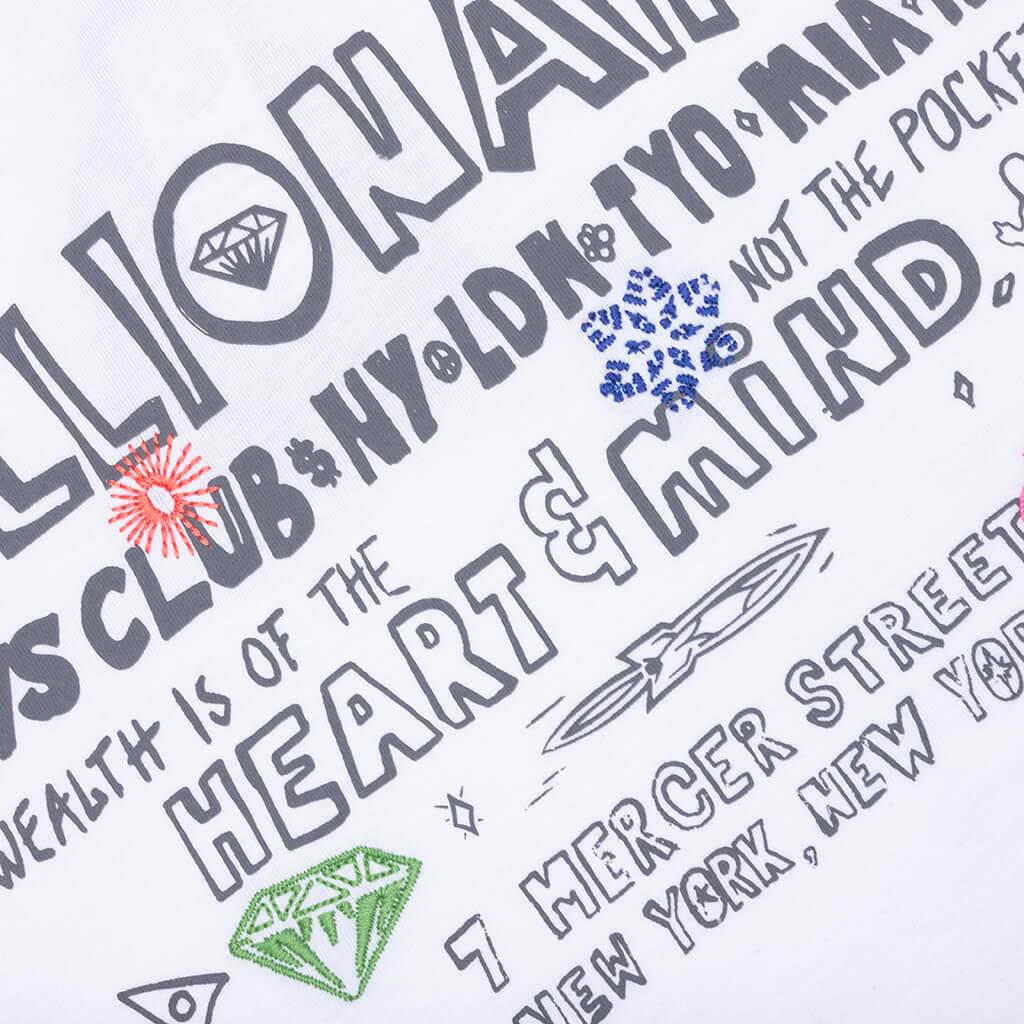 LLIONAI
YS CLUB $ NY LDN TYO MIA
WEALTH IS OF THE
HEART & MiND.
NOT THE POCKE
7 MERCER STREET
NEW YORK, NEW YOR